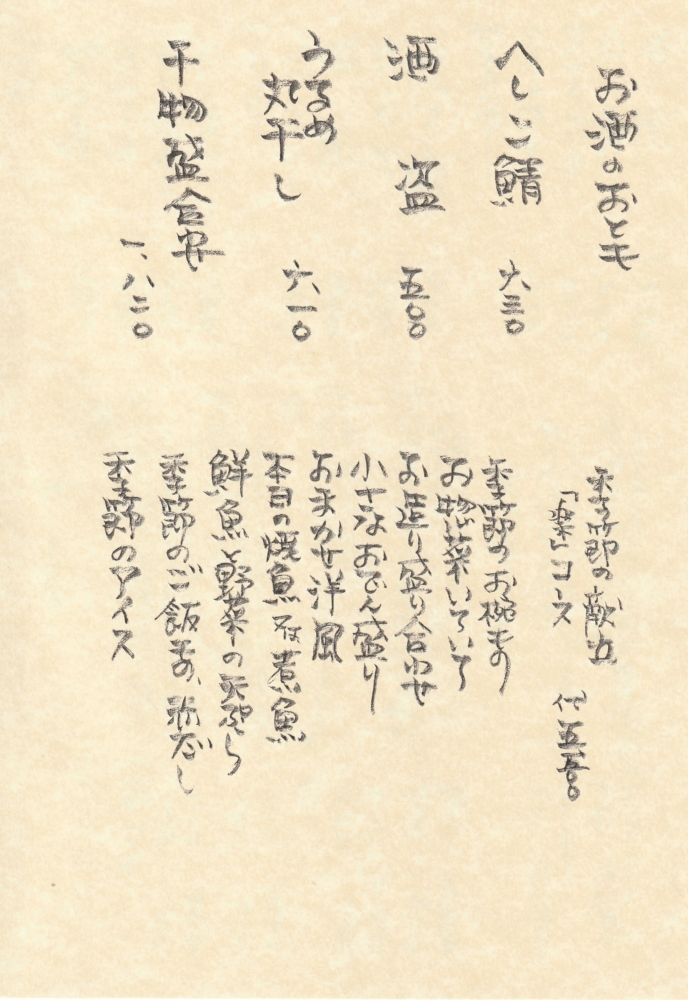 お酒のおとも
へしこ鯖 六三〇
酒盗 五〇〇
うるめ
丸干し 六一〇
干物盛合せ
一、八二〇
季節の献立
「楽」コース 五、五〇〇
季節のお椀もの
お惣菜いろいろ
お造り盛り合わせ
小さなおでん盛り
おまかせ洋風
本日の焼魚又は煮魚
鮮魚と野菜の天ぷら
季節のご飯もの、
季節のアイス